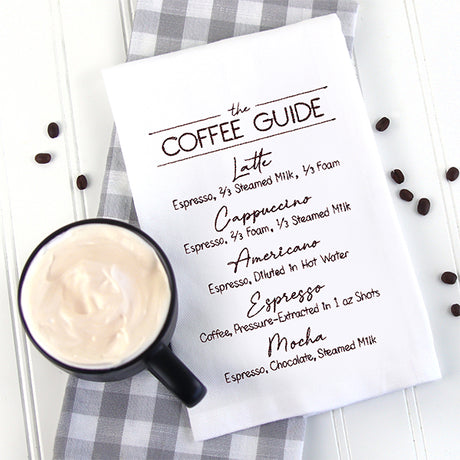 the
COFFEE GUIDE
Latte
Espresso, ⅔ Steamed Milk, ⅓ Foam
Cappuccino
Espresso, ⅔ Foam, ⅓ Steamed Milk
Americano
Espresso, Diluted in Hot Water
Espresso
Coffee, Pressure-Extracted in 1 oz Shots
Mocha
Espresso, Chocolate, Steamed Milk